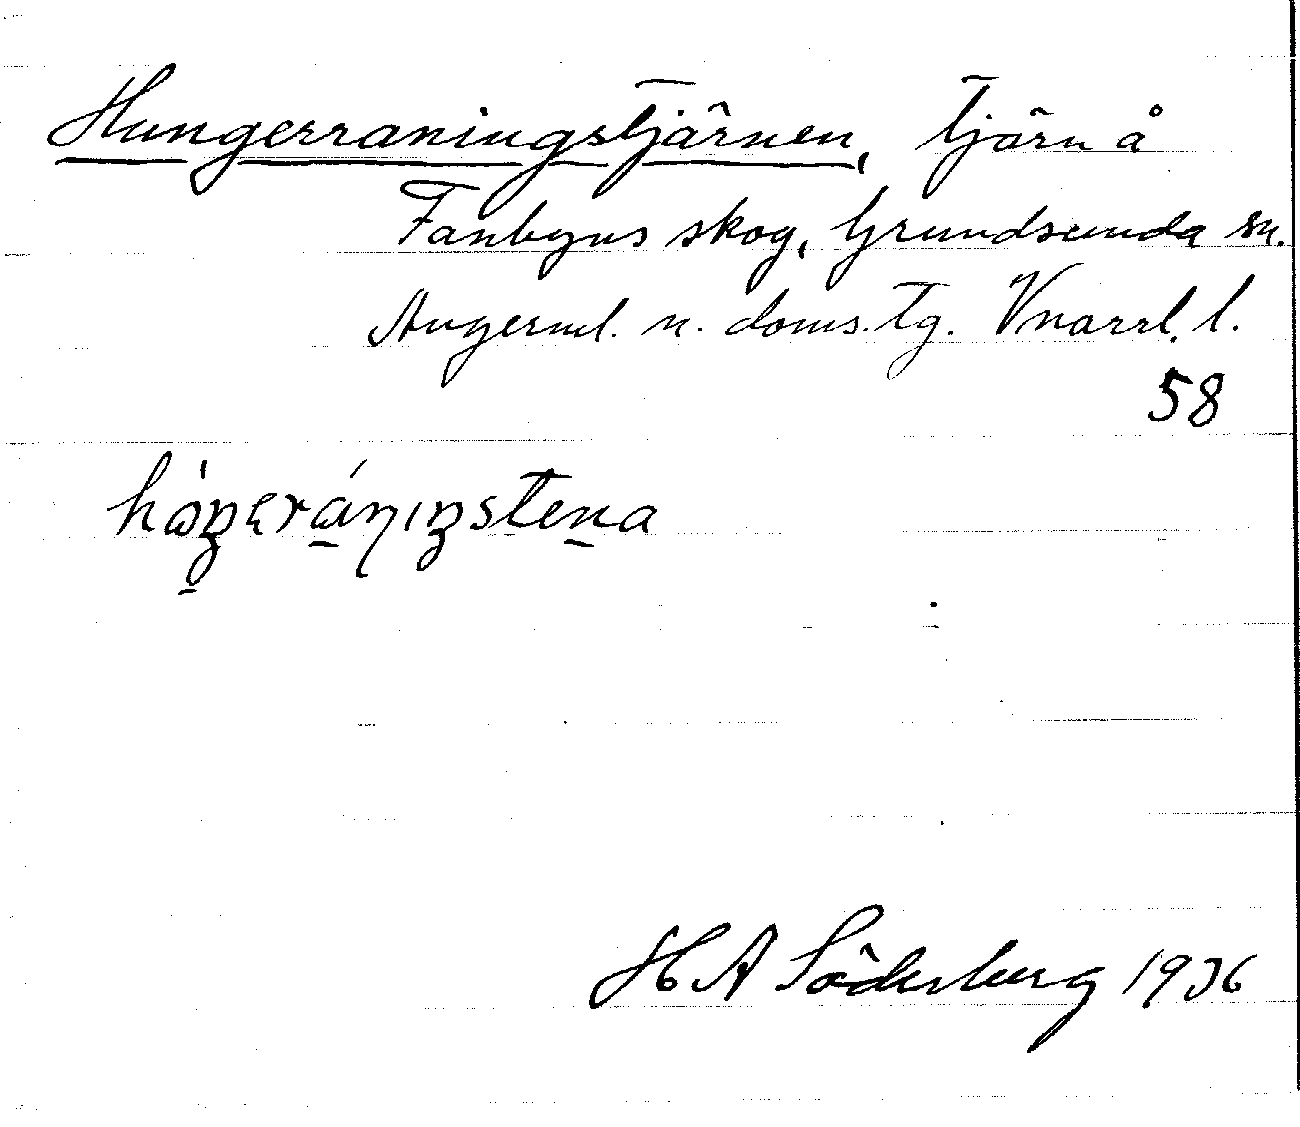 Hungerraningstjärnen, tjärn å
Fanbyns skog, Grundsunda sn.
Ångerml. n. doms.tg. Vnorrl. l.
58
H A Söderberg 1936